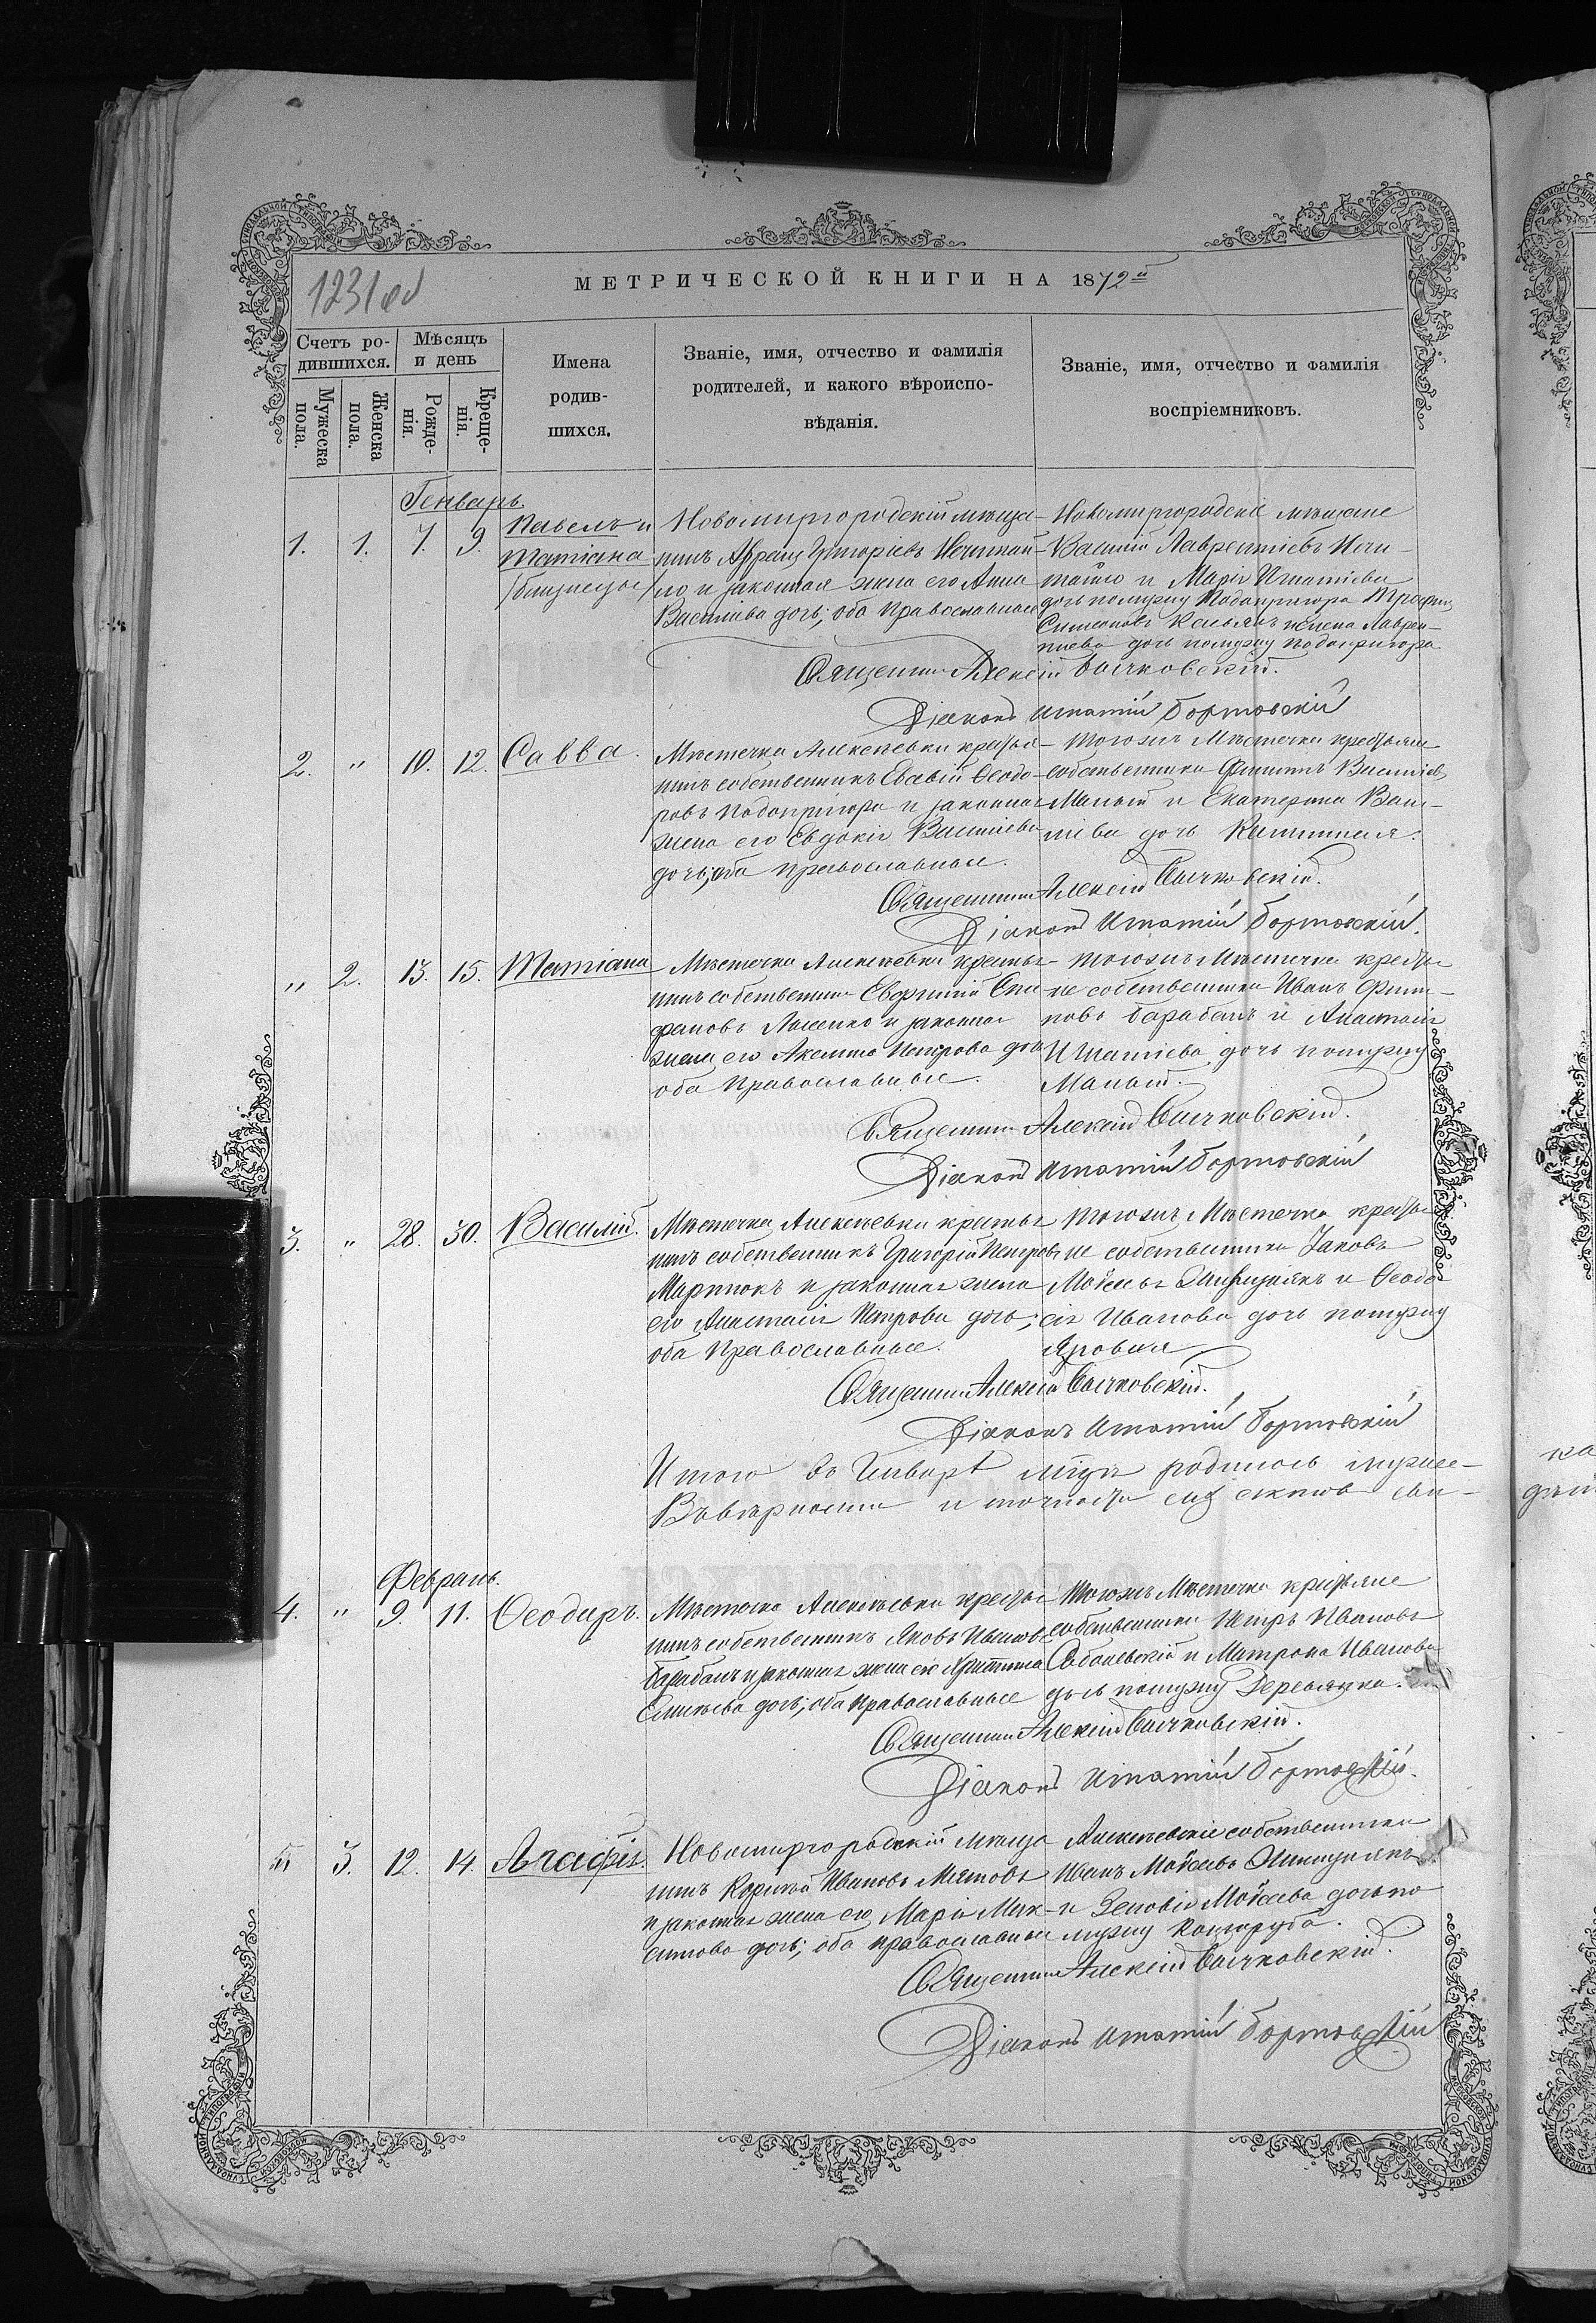 1231 об
МЕТРИЧЕСКОЙ КНИГИ НА 1872й
Счетъ ро-
дившихся.
Мѣсяцъ
и день
Мужеска
пола.
Женска
пола.
Рожде-
нія.
Креще-
нія.
Имена
родив-
шихся.
Званіе, имя, отчество и фамилія
родителей, и какого вѣроиспо-
вѣданія.
Званіе, имя, отчество и фамилія
воспріемниковъ.
Генварь.
1. 1. 7. 9.
Павелъ и
Татіана
/близнецы/
Новомиргородскій мѣща-
нинъ Григоріевъ
и законная жена его Анна
Василіева дочь; оба Православные
Новомиргородскіе мѣщане
Василій Лаврентіевъ
и Марія Игнатіева
дочь помужу Подопригора
Лаврен-
тіева дочь помужу Подопригора
Священникъ Алексій Сычковскій.
Діаконъ Игнатій Бортовскій
2. " 10. 12. Савва.
Мѣстечка Алексѣевки крестья-
нинъ собственникъ Евсевій Ѳеодо-
ровъ Подопригора и законная
жена его Евдокія Василіева
дочь; оба православные.
Тогожъ Мѣстечка крестьяне
собственники Филиппъ Василіевъ
Малый и Екатерина Васи-
ліева дочь
Священникъ Алексій Сычковскій.
Діаконъ Игнатій Бортовскій.
" 2. 13. 15. Татіана
Мѣстечка Алексѣевки крестья-
нинъ собственникъ Евфимій Епи-
фановъ и законная
жена его Акелина Петрова дочь
оба Православные.
Тогожъ Мѣстечка крестья-
не собственники Иванъ Филип-
повъ Барабашъ и Анастасія
Игнатіева дочь помужу
Малый.
Священникъ Алексій Сычковскій.
Діаконъ Игнатій Бортовскій
3. " 28. 30. Василій.
Мѣстечка Алексѣевки крестья-
нинъ собственникъ Григорій Петровъ
Мартюкъ и законная жена
его Анастасія Петрова дочь;
оба Православные.
Тогожъ Мѣстечка крестья-
не собственники Іаковъ
Мойсеевъ и Ѳеодо-
сія Иванова дочь помужу
Яровая
Священникъ Алексій Сычковскій.
Діаконъ Игнатій Бортовскій
Итого въ Генварѣ мѣсяцѣ родилось мужес-
Въ вѣрности и точности сихъ актовъ сви-
Февраль.
4. " 9. 11. Ѳеодоръ.
Мѣстечка Алексѣевки крестья-
нинъ собственникъ Яковъ Ивановъ
Барабашъ и законная жена его Христина
дочь; оба Православные
Тогожъ Мѣстечка крестьяне
собственники Петръ Ивановъ
Соболевскій и Матрона Иванова
дочь помужу Деревянка.
Священникъ Алексій Сычковскій.
Діаконъ Игнатій Бортовскій.
" 3. 12. 14. Агафія.
Новомиргородскій мѣща-
нинъ Ивановъ
и законная жена его Марія
дочь; оба православные
Алексѣевскіе собственники
Иванъ Мойсеевъ
и Зеновія Мойсеева дочь по
мужу
Священникъ Алексій Сычковскій.
Діаконъ Игнатій Бортовскій